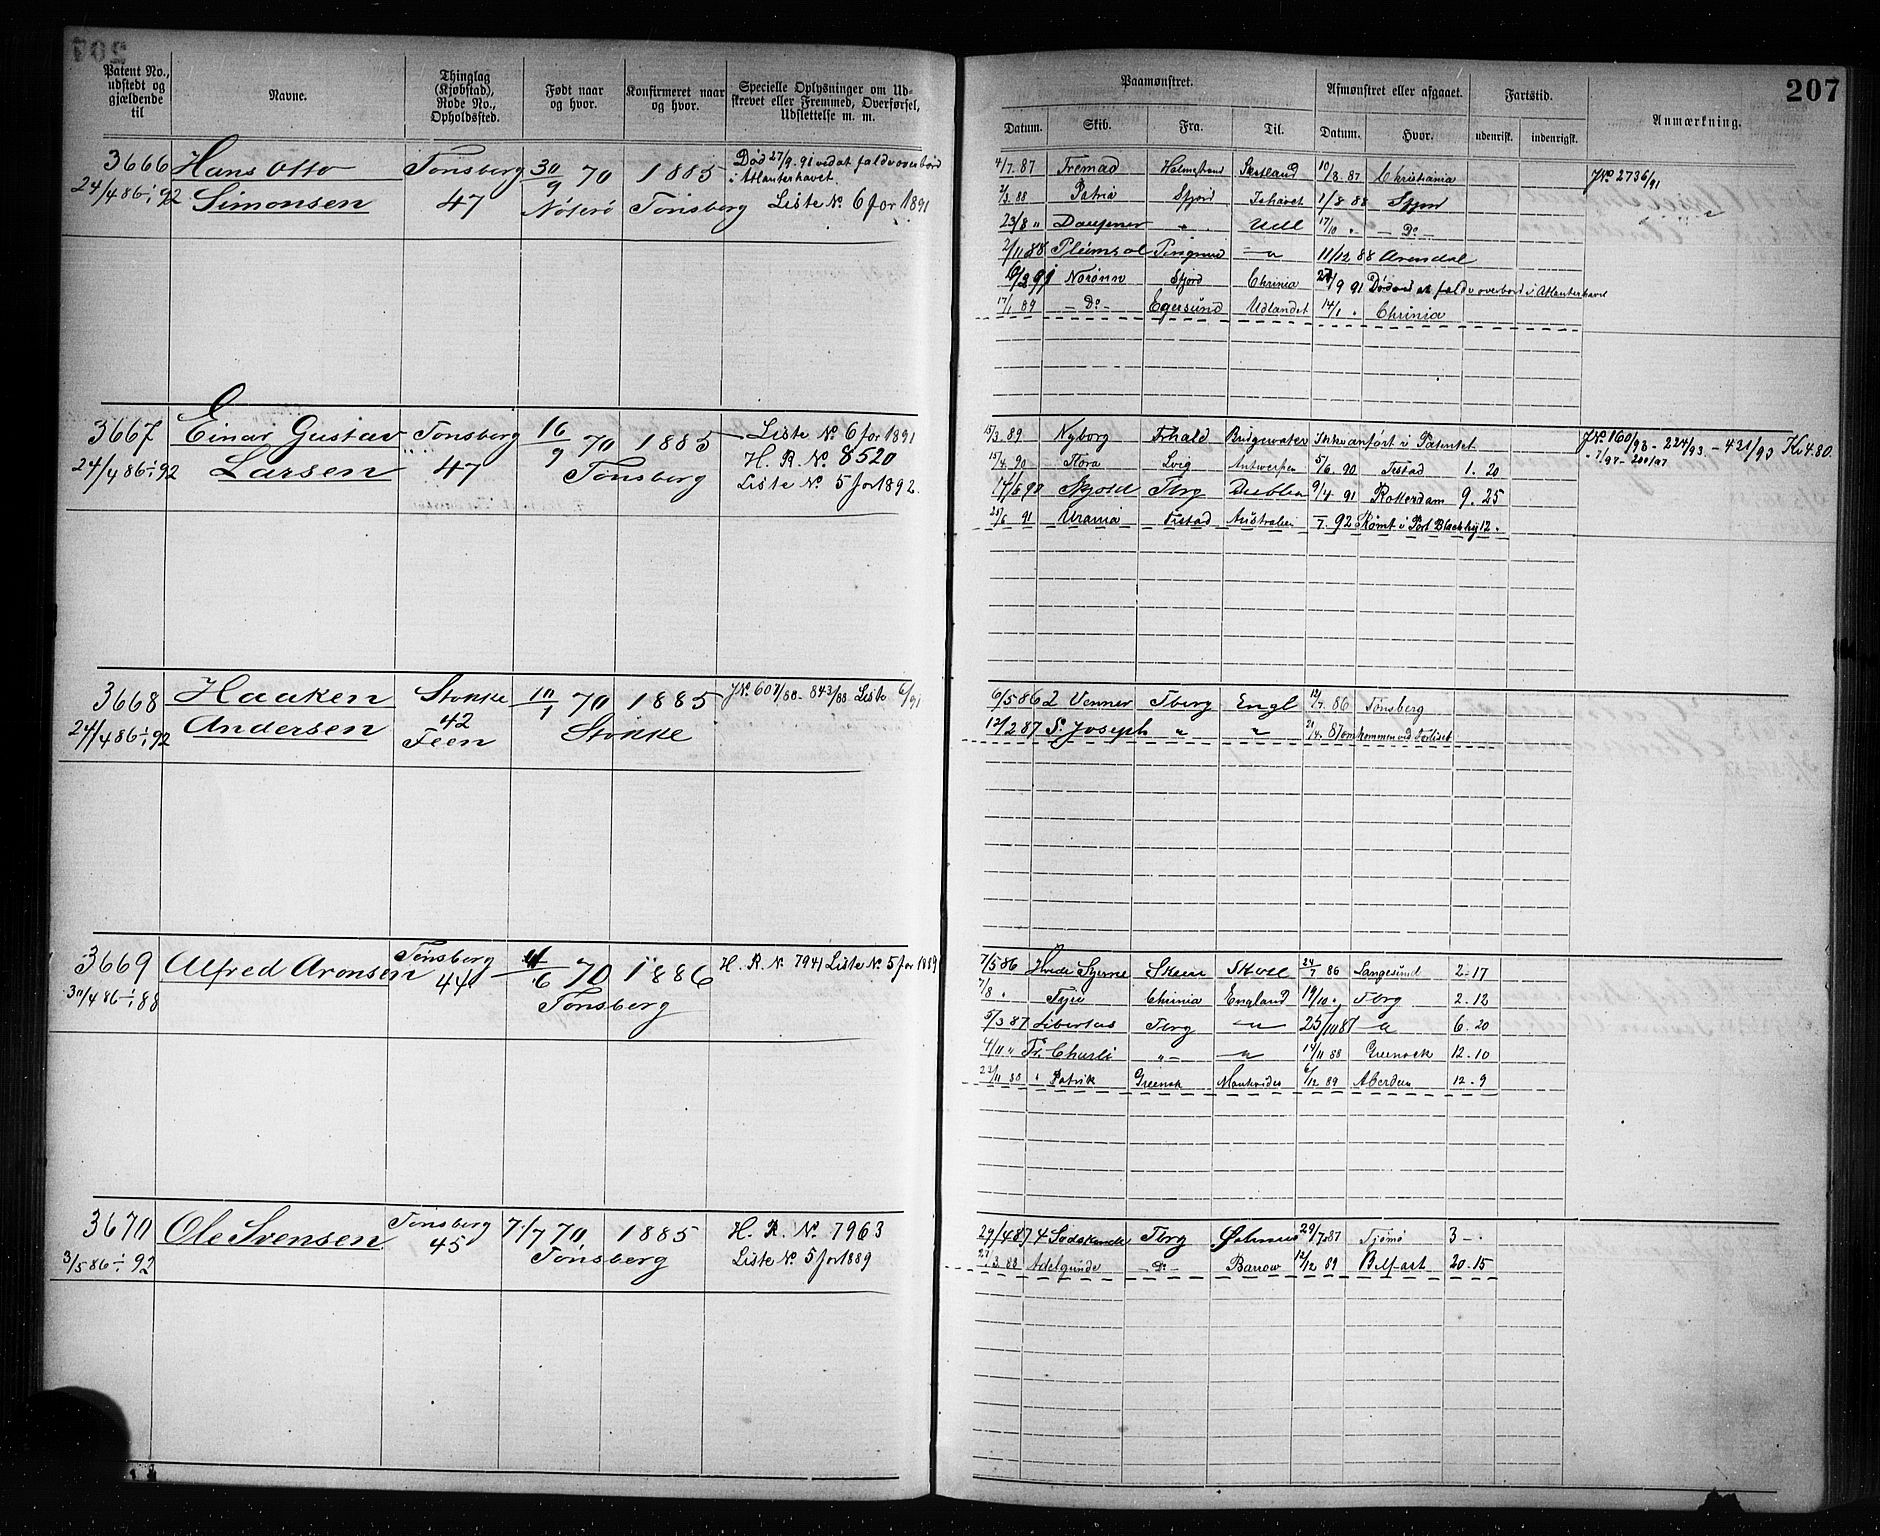 207
Patent No., udstedt og gjældende til
Navne.
Thinglag (Kjøbstad), Rode No., Opholdssted.
Født naar og hvor.
Konfirmeret naar og hvor.
Specielle Oplysninger om Udskrevet eller Fremmed, Overførsel, Udslettelse m. m.
Paamønstret.
Afmønstret eller afgaaet.
Fartstid.
Anmærkning.
Datum. Skib. Fra. Til. Datum. Hvor. udenrigsk. indenrigsk.
3666 Hans Otto Tönsberg 30/9 70 1885 Död 27/9 91 ved at falde overbord
24/4 86 - 1/1 92 Simonsen 47 Nöterö Tönsberg i Atlanterhavet.
Liste No 6 for 1891
4/7. 87 Fremad Holmestrand Skotland 10/8. 87 Christiania JNo 2736/91
2/3. 88 Patria Sfjord Ishavet 1/8 88 Sfjord
23/8 " " Udl 17/10 " - Do -
2/11 88 11/12 88 Arendal
Norönn Sfjord Chrinia 27/9 91 Död ved at falde overbord i Atlanterhavet
17/1 89 - Do - Egersund Udlandet 14/1 " Chrinia
3667 Einar Gustav Tönsberg 16/9 70 1885 Liste No 6 for 1891
24/4 86 - 1/1 92 Larsen 47 Tönsberg H. R. No 8520
Liste No 5 for 1892.
15/3. 89 Nyborg Frhald Bridgewater Ikke anfört i Patentet JNo 160/93 - 224/93 - 421/93 Kr 4.80.
15/4. 90 Flora Lvig Antwerpen 5/6. 90 Frstad 1. 20
17/6 90 Skjold Tbrg Dublin 9/4 91 Rotterdam 9. 25
23/6 91 Urania Frstad Australien /7. 92 Römt i Port 12 "
3668 Haaken Stokke 10/1 70 1885 JNo 607/88 - 843/88 Liste 6/91
24/4 86 - 1/1 92 Andersen 42 Stokke
Feen
6/5 86 2 Venner Tberg Engl 12/7. 86 Tönsberg
12/2 87 St Joseph " " 21/4. 87 omkommen ved Forliset
3669 Alfred Aronsen Tönsberg /6 70 1886 H. R. No 7941 Liste No 5 for 1889
30/4 86 - 1/1 88 44 Tönsberg
7/5 86 Hvide Stjerne Skien 24/7 86 Langesund 2-17
7/8 " Chrinia England 19/10 " Tbrg 2. 12
5/3 87 Libertas Tbrg - " 25/10 87 - " 6. 20
4/11 " Fr. Charli " - - " 14/11 88 Greenock 12. 10
22/11 88 " Patrik Greenok Montevideo 6/12 89 Aberdeen 12. 9
3670 Ole Svensen Tönsberg 7/7 70 1885 H. R. No 7963
3/5 86 - 1/1 92 45 Tönsberg Liste No 5 for 1889
29/4 87 4 Södskende Tbrg 29/7 87 Tjömö 3 - "
27/3. 88 Adelgunde - Do - Barrow 12/12 89 Belfast 20-15